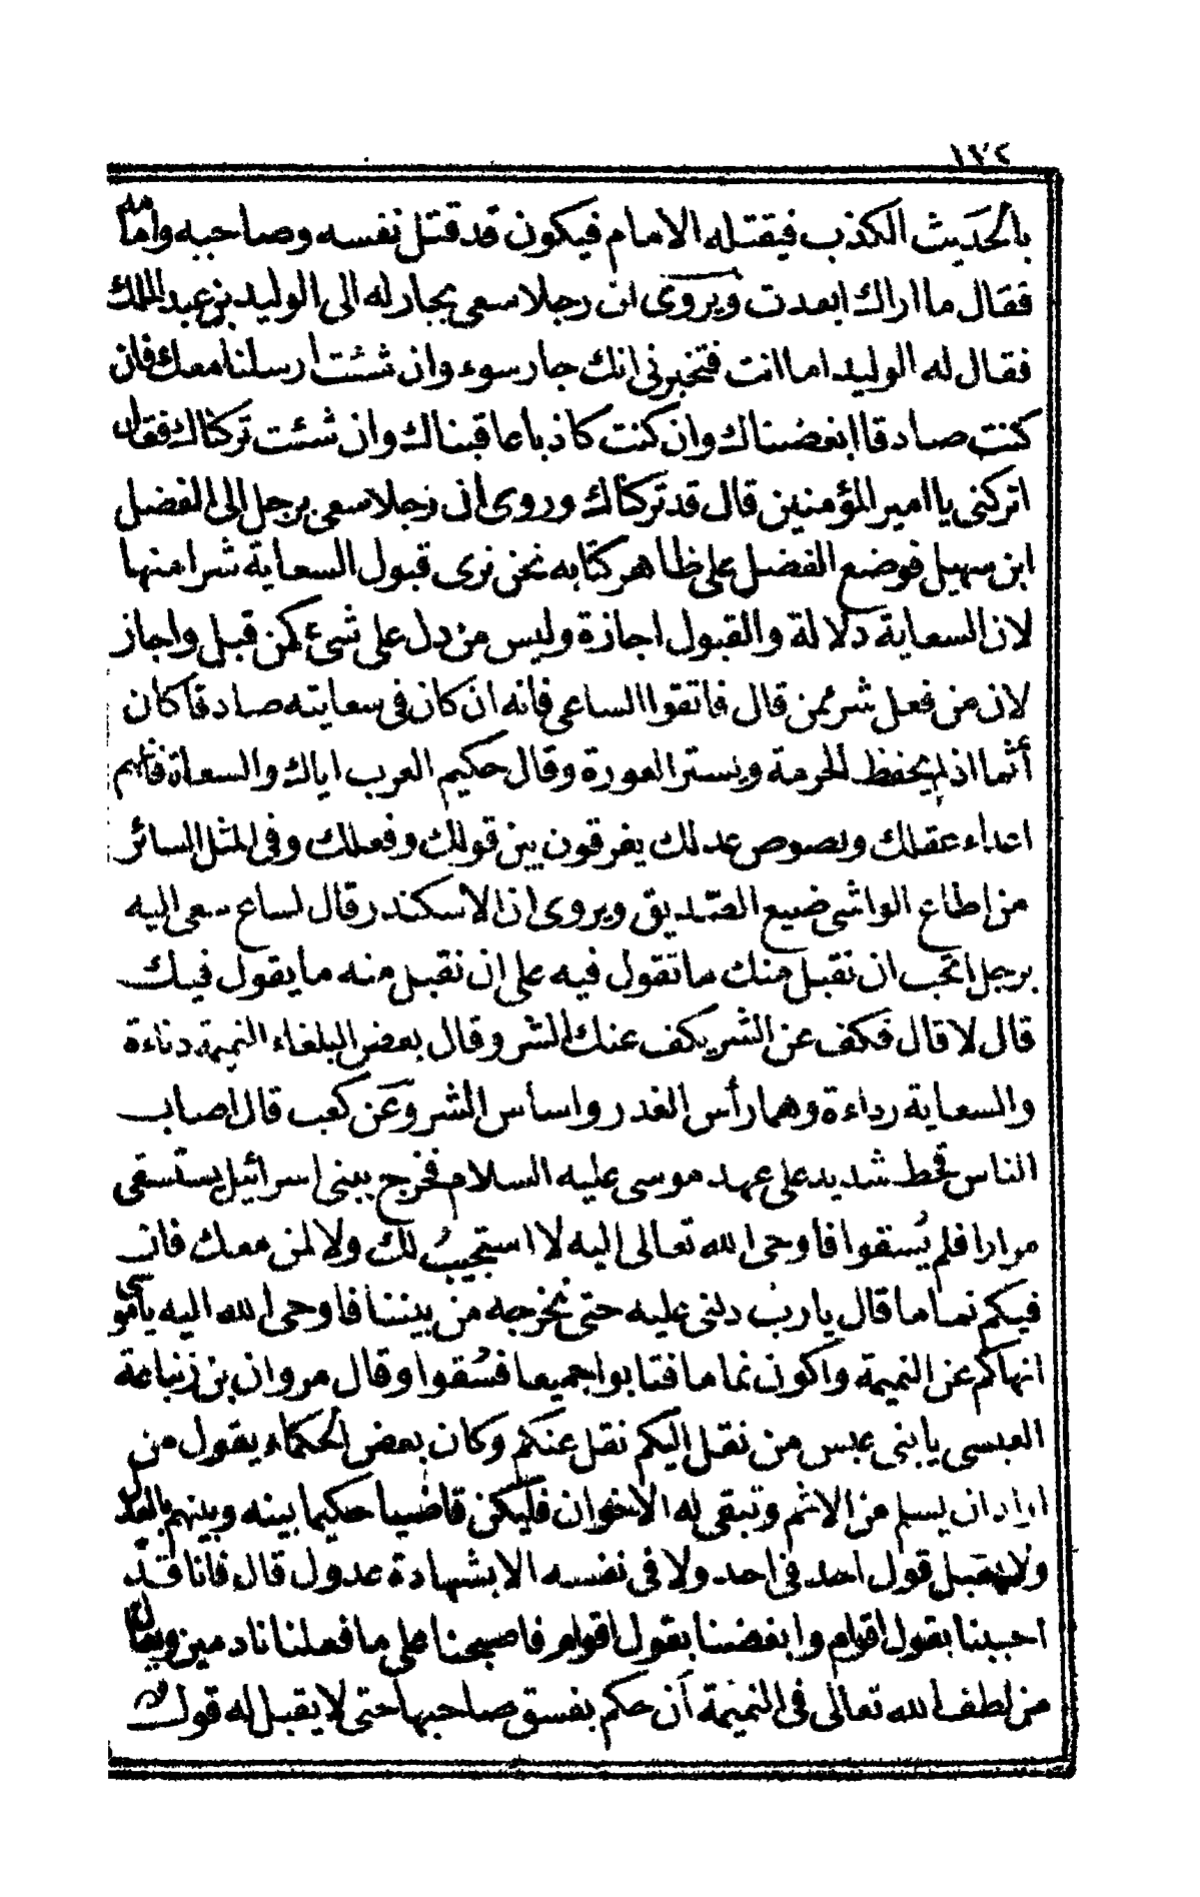 ١٧٢
بالحديث الكذب فيقتله الامام فيكون قد قتل نفسه وصاحبه وامامه
فقال ما اراك ابعدت ويروى ان رجلا سعى بجار له الى الوليد بن عبد الملك
فقال له الوليد اما انت فتخبرنى انك جار سوء وان شئت ارسلنا معك فان
كنت صادقا ابغضناك وان كنت كاذبا عاقبناك وان شئت تركناك فقال
اتركنى يا امير المؤمنين قال قد تركناك وروى ان رجلا سعى برجل الى الفضل
ابن سهيل فوضع الفضل على ظاهر كتابه نحن نرى قبول السعاية شرا منها
لان السعاية دلالة والقبول اجازة وليس من دل على شئ كمن قبل واجاز
لان من فعل شر ممن قال فاتقوا الساعى فانه ان كان فى سعايته صادقا كان
أثما اذ لم يحفظ الحرمة ويستر العورة وقال حكيم العرب اياك والسعاة فانهم
اعداء عقلك ولصوص عدلك يفرقون بين قولك وفعلك وفى المثل السائر
من اطاع الواشى ضيع الصديق ويروى ان الاسكندر قال لساع سعى اليه
برجل اتحب ان نقبل منك ما تقول فيه على ان نقبل منه ما يقول فيك
قال لا قال فكف عن الشر يكف عنك الشر وقال بعض البلغاء النميمة دناءة
والسعاية رداءة وهما رأس الغدر واساس الشر وعن كعب قال اصاب
الناس قحط شديد على عهد موسى عليه السلام فخرج ببنى اسرائيل يستسقى
مرارا فلم يُسقوا فاوحى الله تعالى اليه لا استجيبُ لك ولا لمن معك فان
فيكم نماما قال يا رب دلنى عليه حتى نخرجه من بيننا فاوحى الله اليه يا موسى
انهاكم عن النميمة واكون نماما فتابوا جميعا فسُقوا وقال مروان بن زنباعة
العبسى يا بنى عبس من نقل اليكم نقل عنكم وكان بعض الحكماء يقول من
اراد ان يسلم من الاثم وتبقى له الاخوان فليكن قاضيا حكيما بينه وبينهم بالعدل
ولا يقبل قول احد فى احد ولا فى نفسه الا بشهادة عدول قال فانا قد
احببنا بقول اقوام وابغضنا بقول اقوام فاصبحنا على ما فعلنا نادمين ويقال
من لطف الله تعالى فى النميمة أن حكم بفسق صاحبها حتى لا يقبل له قول